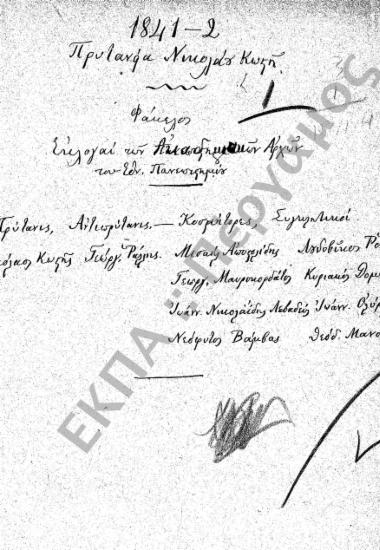 1841-2
Πρυτανεία Νικολάου Κωστῆ.
Φάκελος
Ἐκλογαὶ τῶν Ἀκαδημαϊκῶν Ἀρχῶν
τοῦ Ἐθν. Πανεπιστημίου
Πρύτανις, Ἀντιπρύτανις. — Κοσμήτορες, Συγκλητικοί
Κωστῆς Γεώργ. Ῥάλλης. Μισαὴλ Ἀποστολίδης Λουδοβῖκος
Γεώργ. Μαυροκορδάτος Κυριακὸς
Ἰωάνν. Νικολαΐδης Λεβαδεὺς Ἰωάνν.
Νεόφυτος Βάμβας Θεόδ.
ΕΚΠΑ :: Πέργαμος